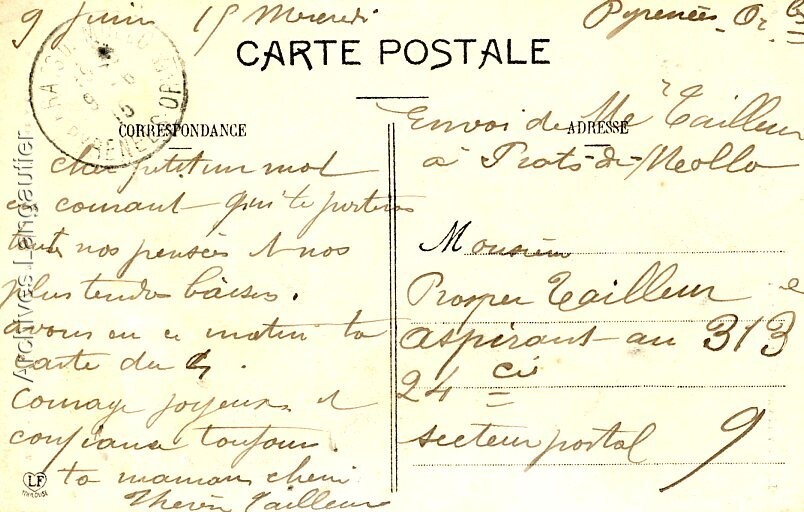 9 Juin 15 Mercredi
Pyrenées. Or les
CARTE POSTALE
CORRESPONDANCE
ADRESSE
Envoi de Me Tailleur
à Prats-de-Mollo
cher petit un mot
en courant qui te portera
toutes nos pensées et nos
plus tendres baisers.
avons eu ce matin ta
carte du 4.
Courage joyeux et
confiance toujours.
ta maman cherie
Thérèse Tailleur
Monsieur
Prosper Tailleur
aspirant au 313 e
24 Cie
secteur postal 9
PYRENEES OR
LF
TOULOUSE
Archives Langautier